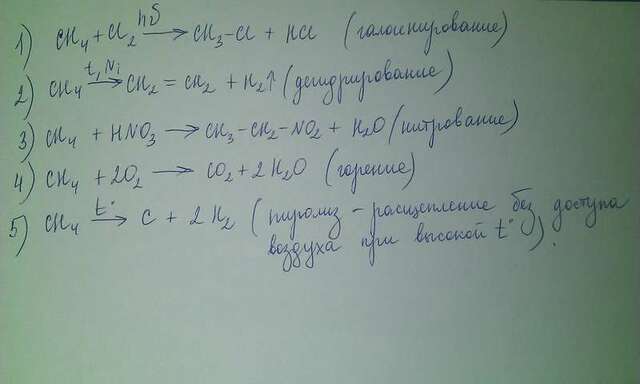 1) CH₄ + Cl₂ hδ → CH₃-Cl + HCl (галогенирование)
2) CH₄ t, Ni → CH₂ = CH₂ + H₂↑ (дегидрирование)
3) CH₄ + HNO₃ → CH₃-CH₂-NO₂ + H₂O (нитрование)
4) CH₄ + 2O₂ → CO₂ + 2H₂O (горение)
5) CH₄ t° → C + 2H₂ (пиролиз - расщепление без доступа
воздуха при высокой t°).